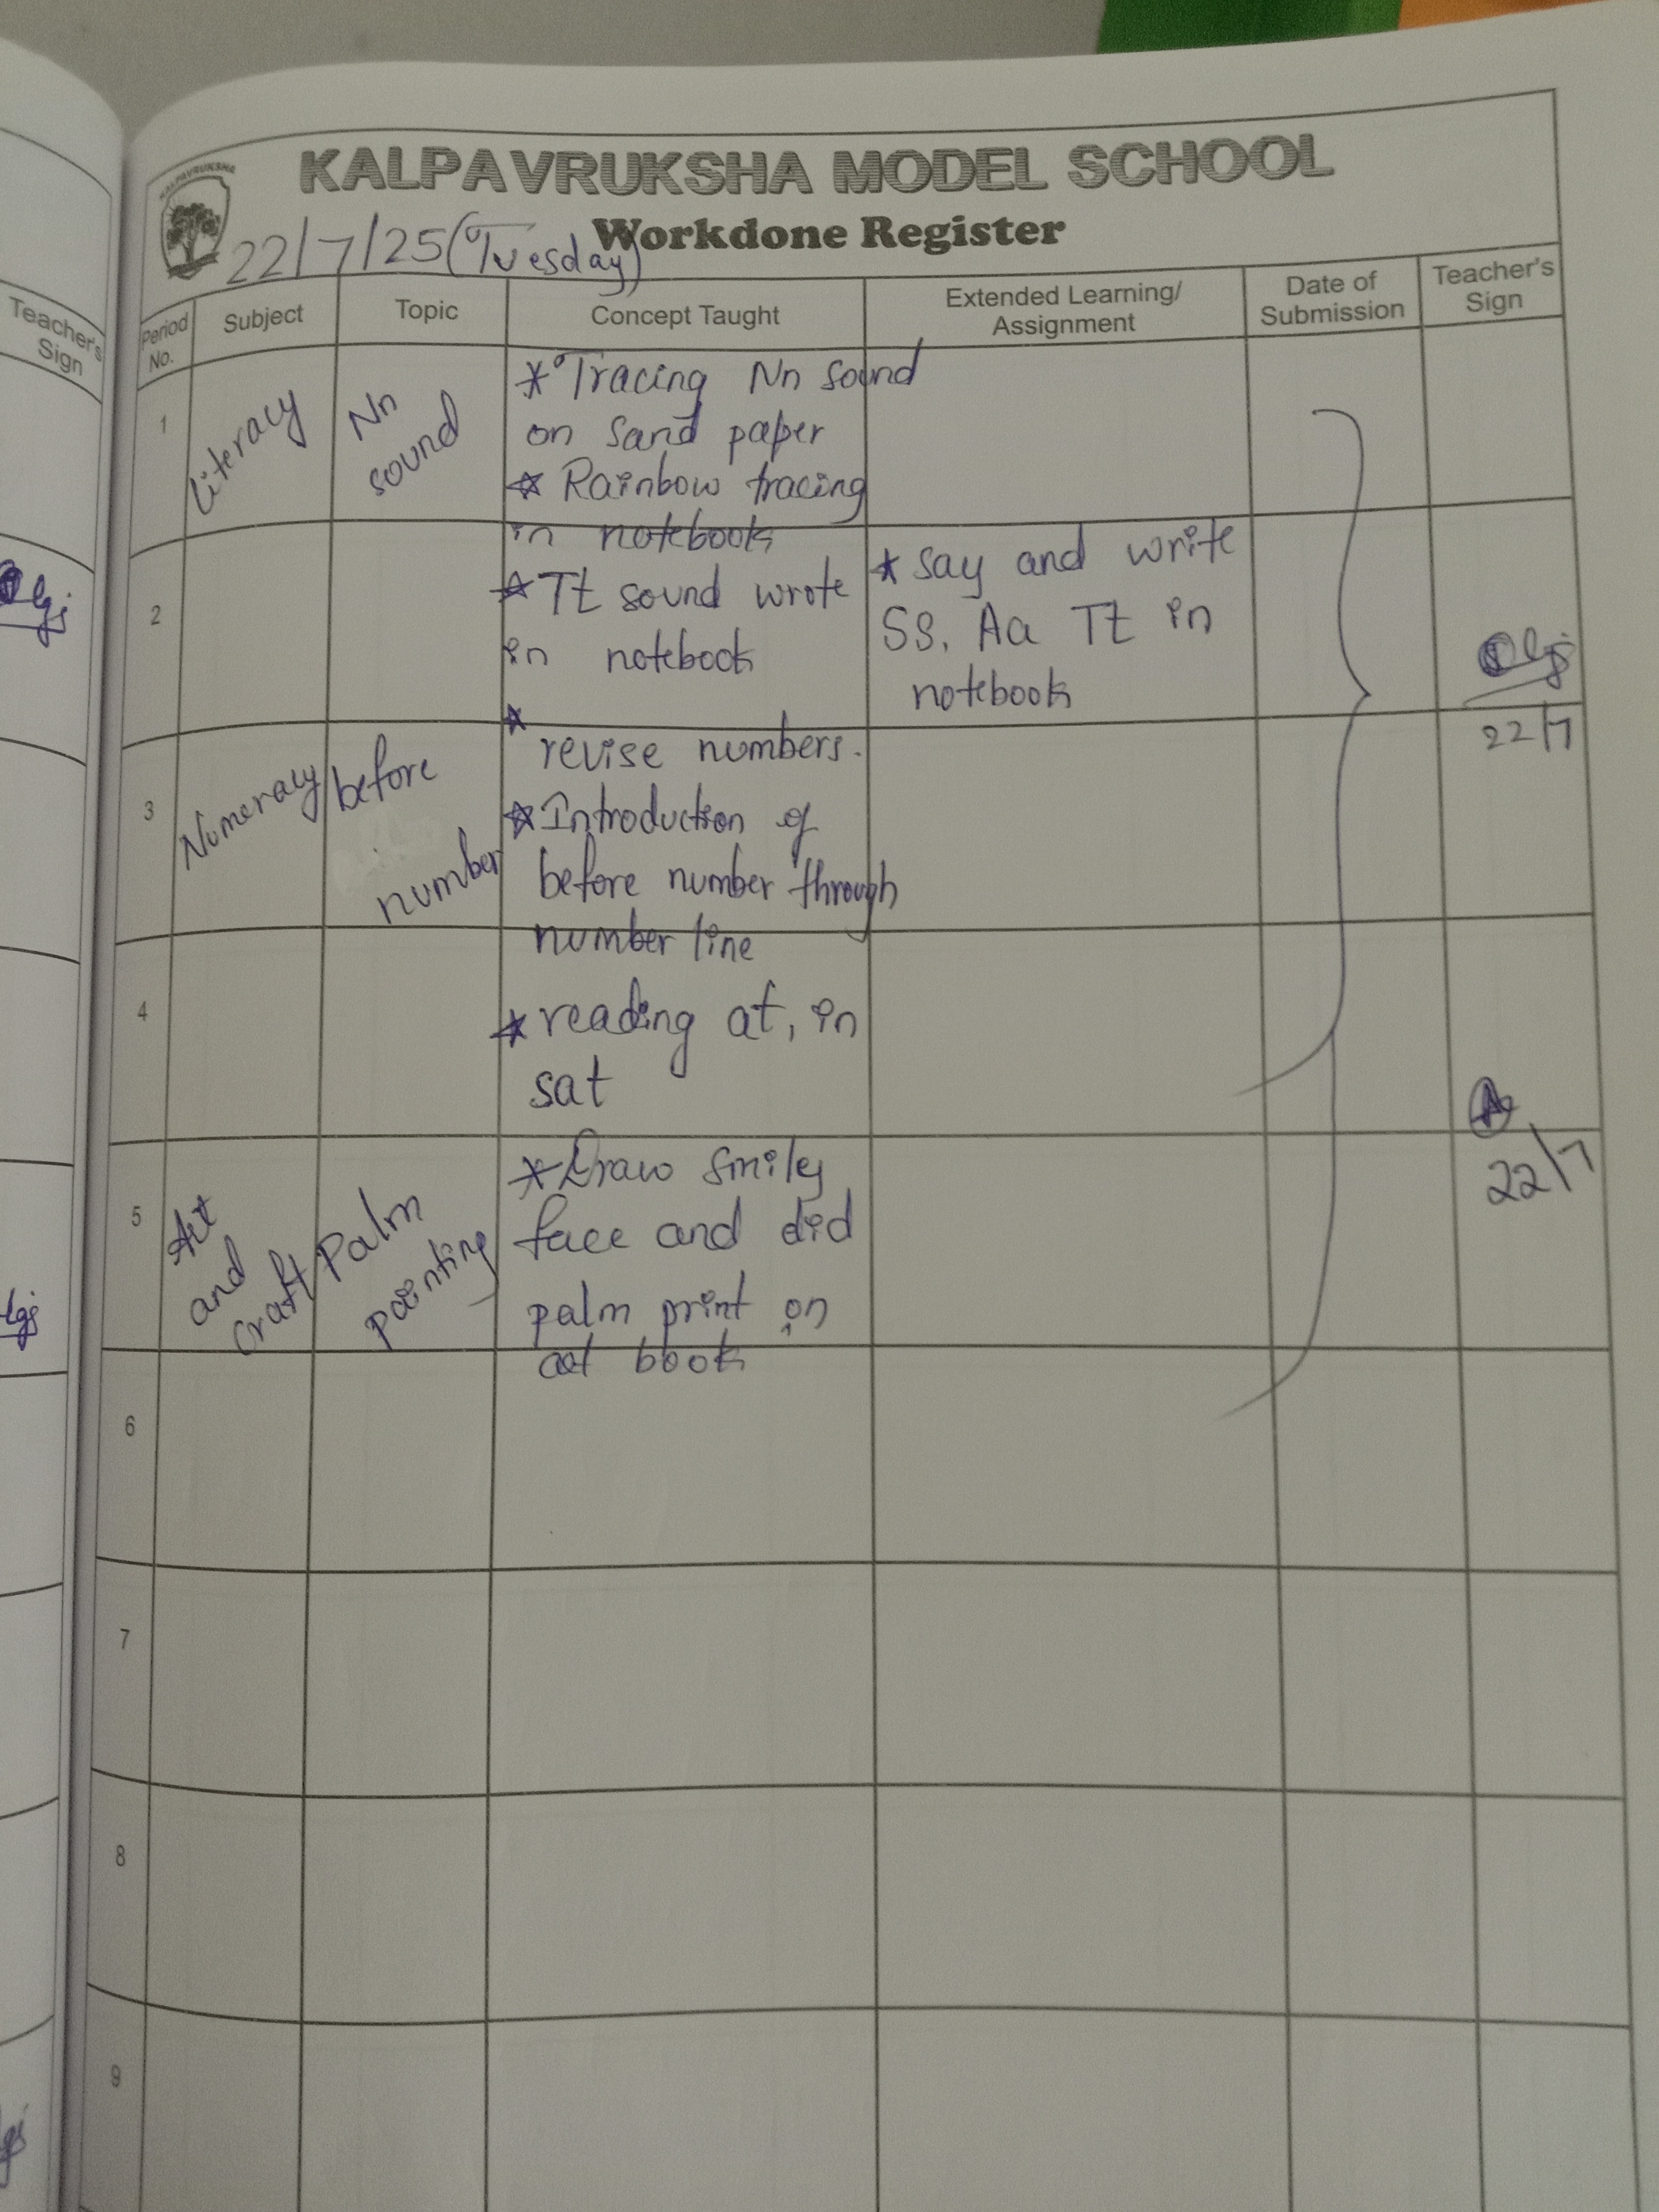 KALPAVRUKSHA
KALPAVRUKSHA MODEL SCHOOL
Workdone Register
22/7/25 (Tuesday)
Teacher's
Sign
Period
No.
Subject
Topic
Concept Taught
Extended Learning/
Assignment
Date of
Submission
Teacher's
Sign
1
Literacy
Nn
sound
* Tracing Nn sound
on sand paper
* Rainbow tracing
in notebook
2
* Tt sound wrote
in notebook
* say and write
Ss, Aa Tt in
notebook
22/7
3
Numeracy
before
number
*
revise numbers.
* Introduction of
before number through
number line
4
* reading at, in
sat
22/7
5
Art
and
craft
Palm
painting
* Draw smiley
face and did
palm print on
art book
6
7
8
9